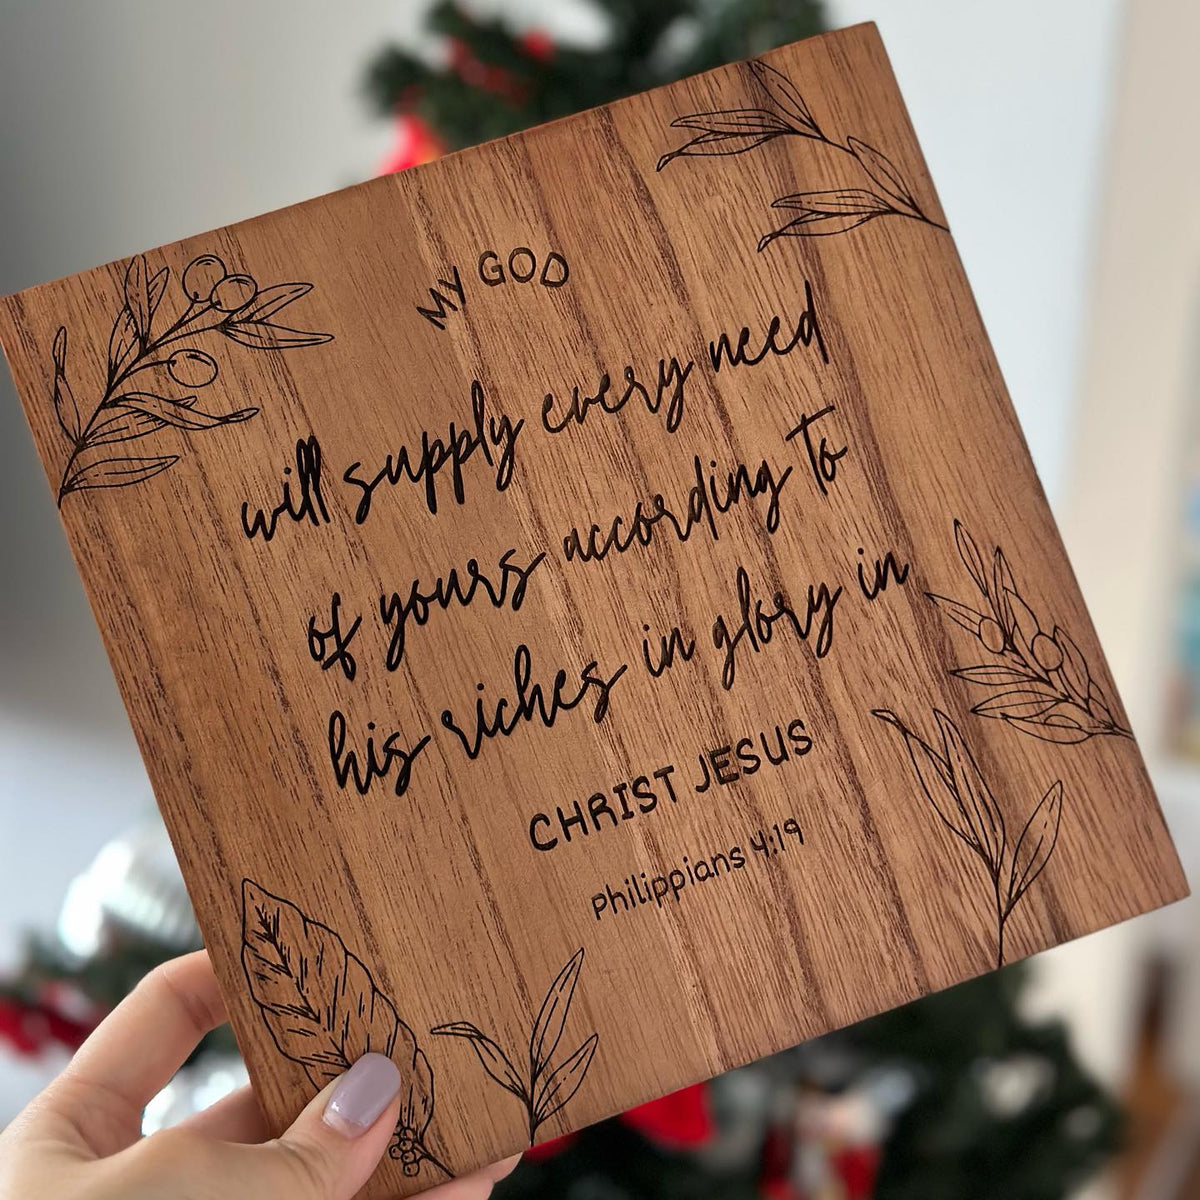 MY GOD
will supply every need
of yours according to
his riches in glory in
CHRIST JESUS
Philippians 4:19